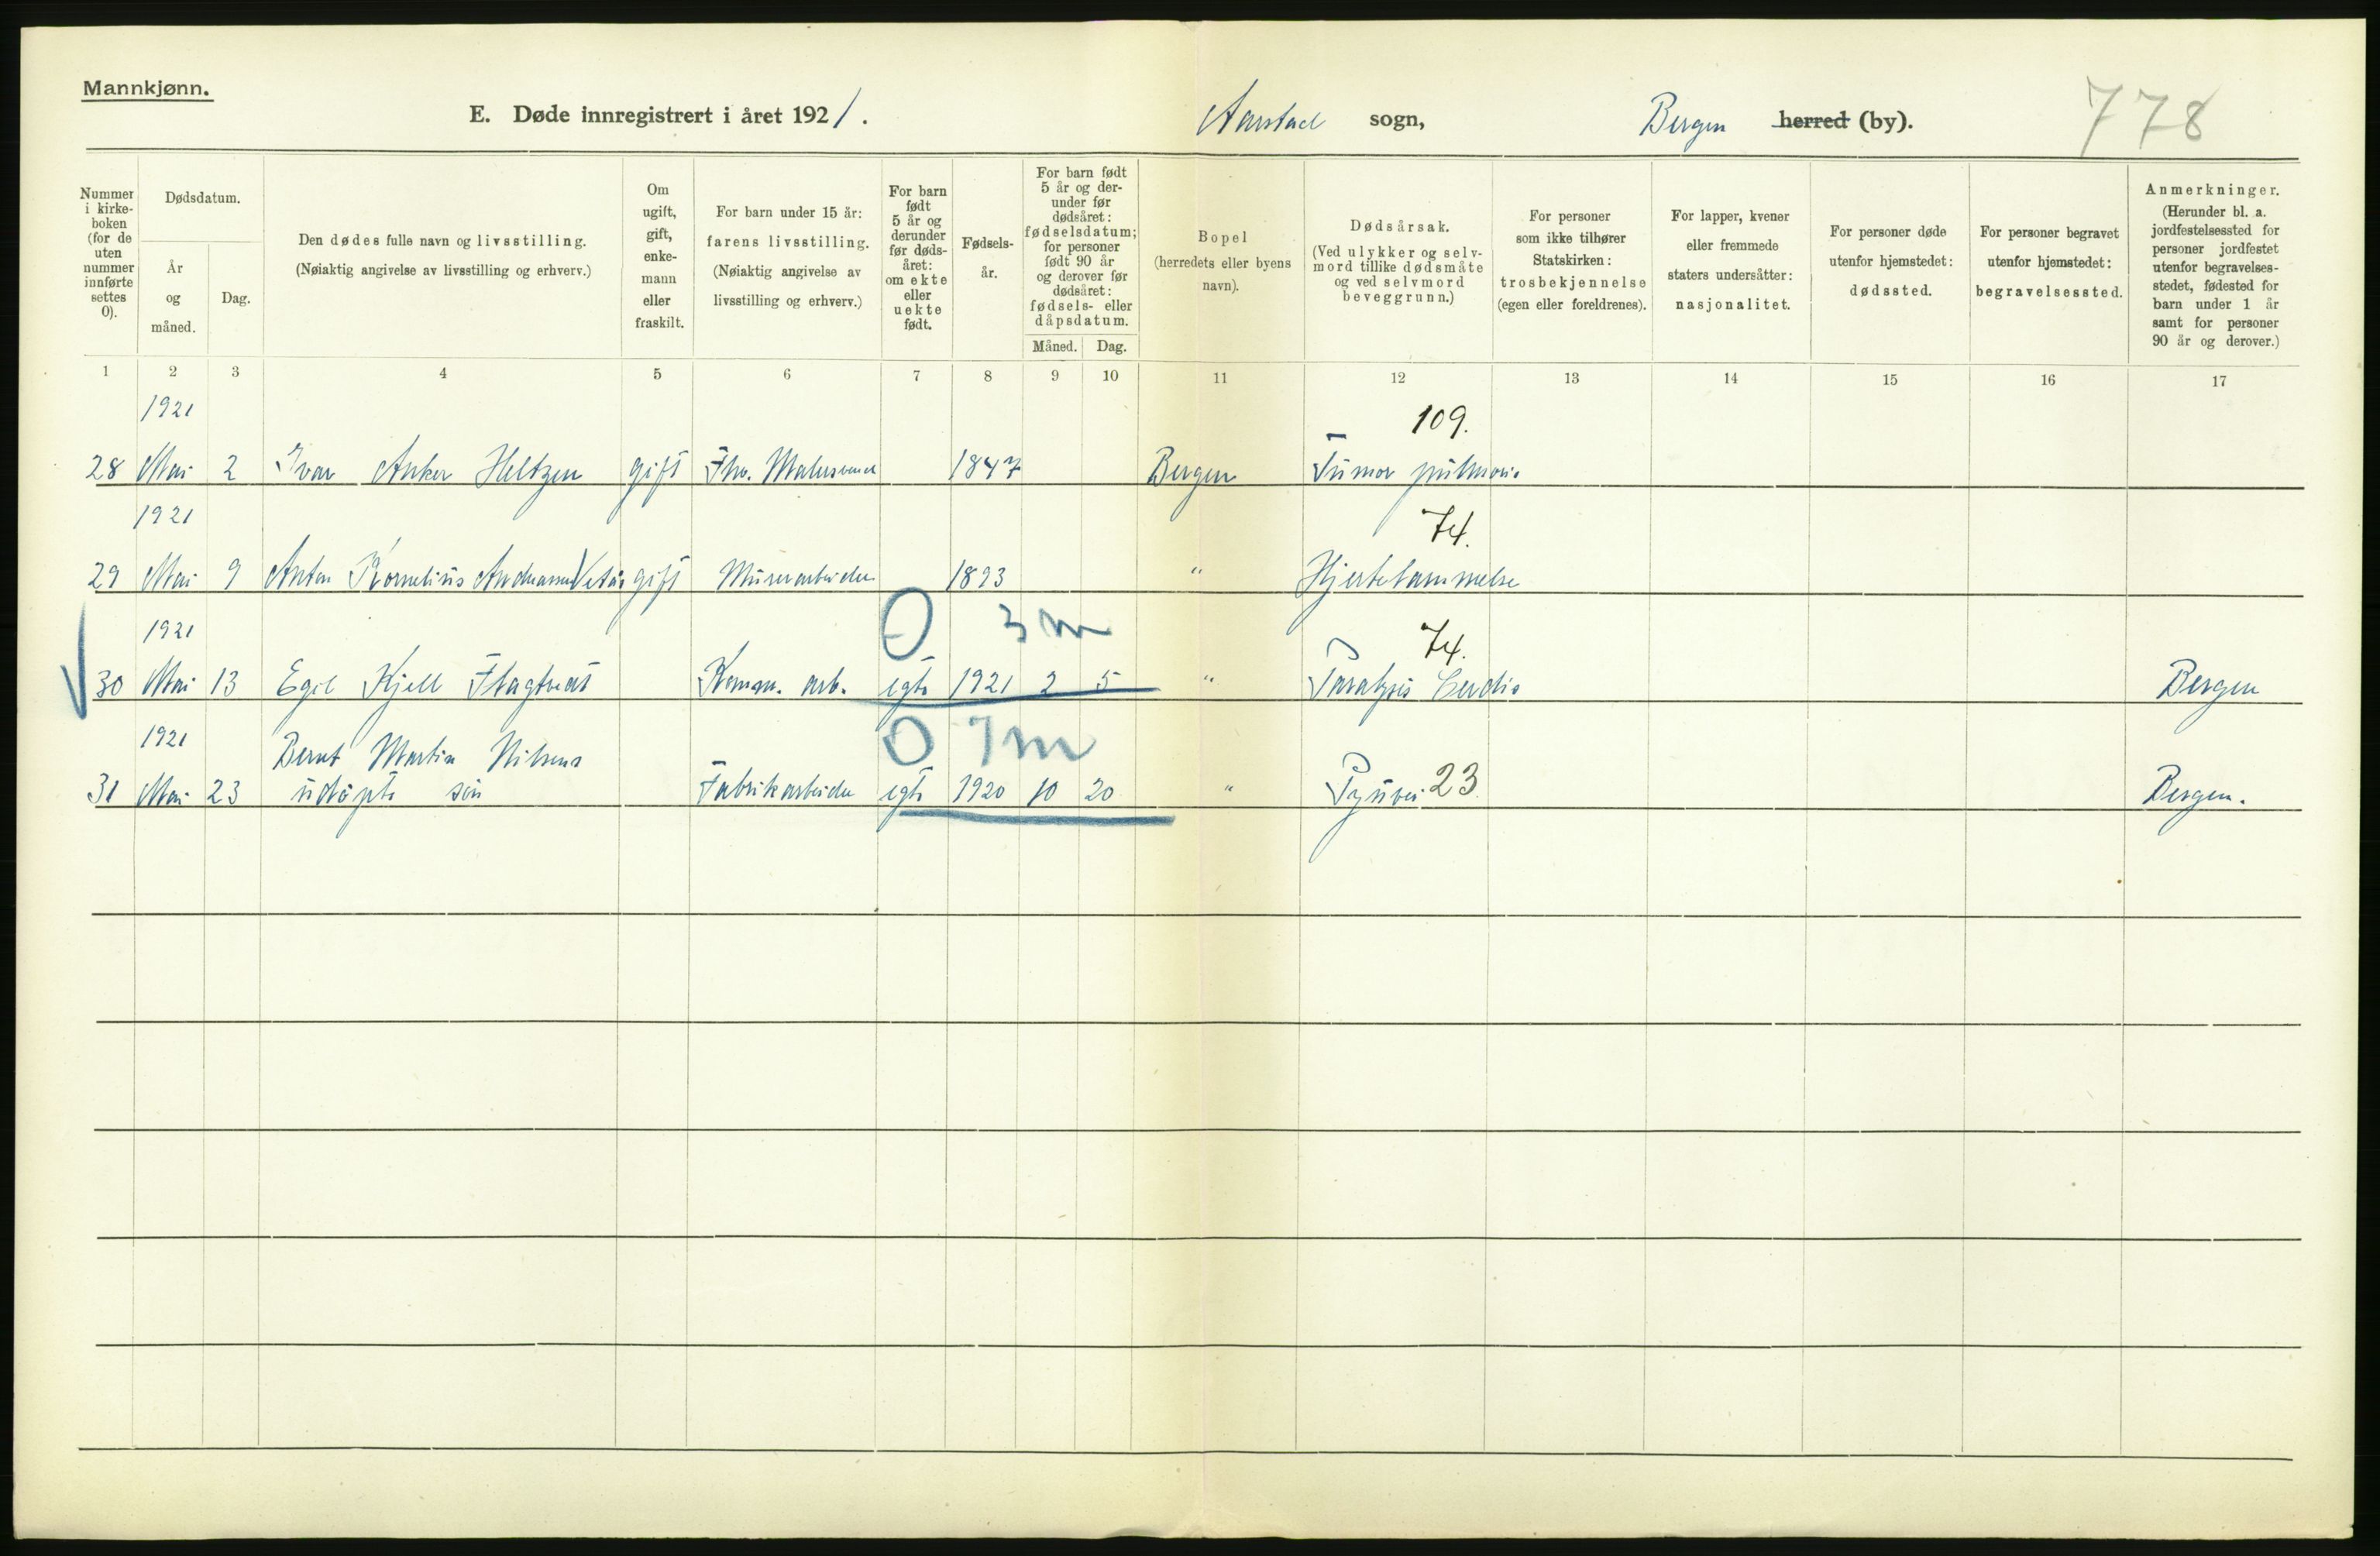 Mannkjønn.
E. Døde innregistrert i året 1921.
Aarstad sogn, Bergen herred (by).
778
Nummer i kirke-
boken
(for de
uten
nummer
innførte
settes
0).
Dødsdatum.
År
og
måned.
Dag.
Den dødes fulle navn og livsstilling.
(Nøiaktig angivelse av livsstilling og erhverv.)
Om
ugift,
gift,
enke-
mann
eller
fraskilt.
For barn under 15 år:
farens livsstilling.
(Nøiaktig angivelse av
livsstilling og erhverv.)
For barn
født
5 år og
derunder
før døds-
året:
om ekte
eller
uekte
født.
Fødsels-
år.
For barn født
5 år og der-
under før
dødsåret:
fødselsdatum;
for personer
født 90 år
og derover før
dødsåret:
fødsels- eller
dåpsdatum.
Måned. Dag.
Bopel
(herredets eller byens
navn).
Dødsårsak.
(Ved ulykker og selv-
mord tillike dødsmåte
og ved selvmord
beveggrunn.)
For personer
som ikke tilhører
Statskirken:
trosbekjennelse
(egen eller foreldrenes).
For lapper, kvener
eller fremmede
staters undersåtter:
nasjonalitet.
For personer døde
utenfor hjemstedet:
dødssted.
For personer begravet
utenfor hjemstedet:
begravelsessted.
Anmerkninger.
(Herunder bl. a.
jordfestelsessted for
personer jordfestet
utenfor begravelses-
stedet, fødested for
barn under 1 år
samt for personer
90 år og derover.)
1 2 3 4 5 6 7 8 9 10 11 12 13 14 15 16 17
1921 109.
28 Mai 2 Ivar Anker Heltzen gift Fhv. 1847 Bergen Tumor pulmonis
1921 74.
29 Mai 9 Anton Kornelius gift Murerarbeider 1893 " Hjertelammelse
1921 0 3 m 74.
30 Mai 13 Egil Kjell Flagtvedt Komm. arb. egte 1921 2 5 " Paralysis Cordis Bergen
1921 Bernt Martin Nilsens 0 7 m
31 Mai 23 udøpte søn Fabrikarbeider egte 1920 10 20 " 23 Bergen.